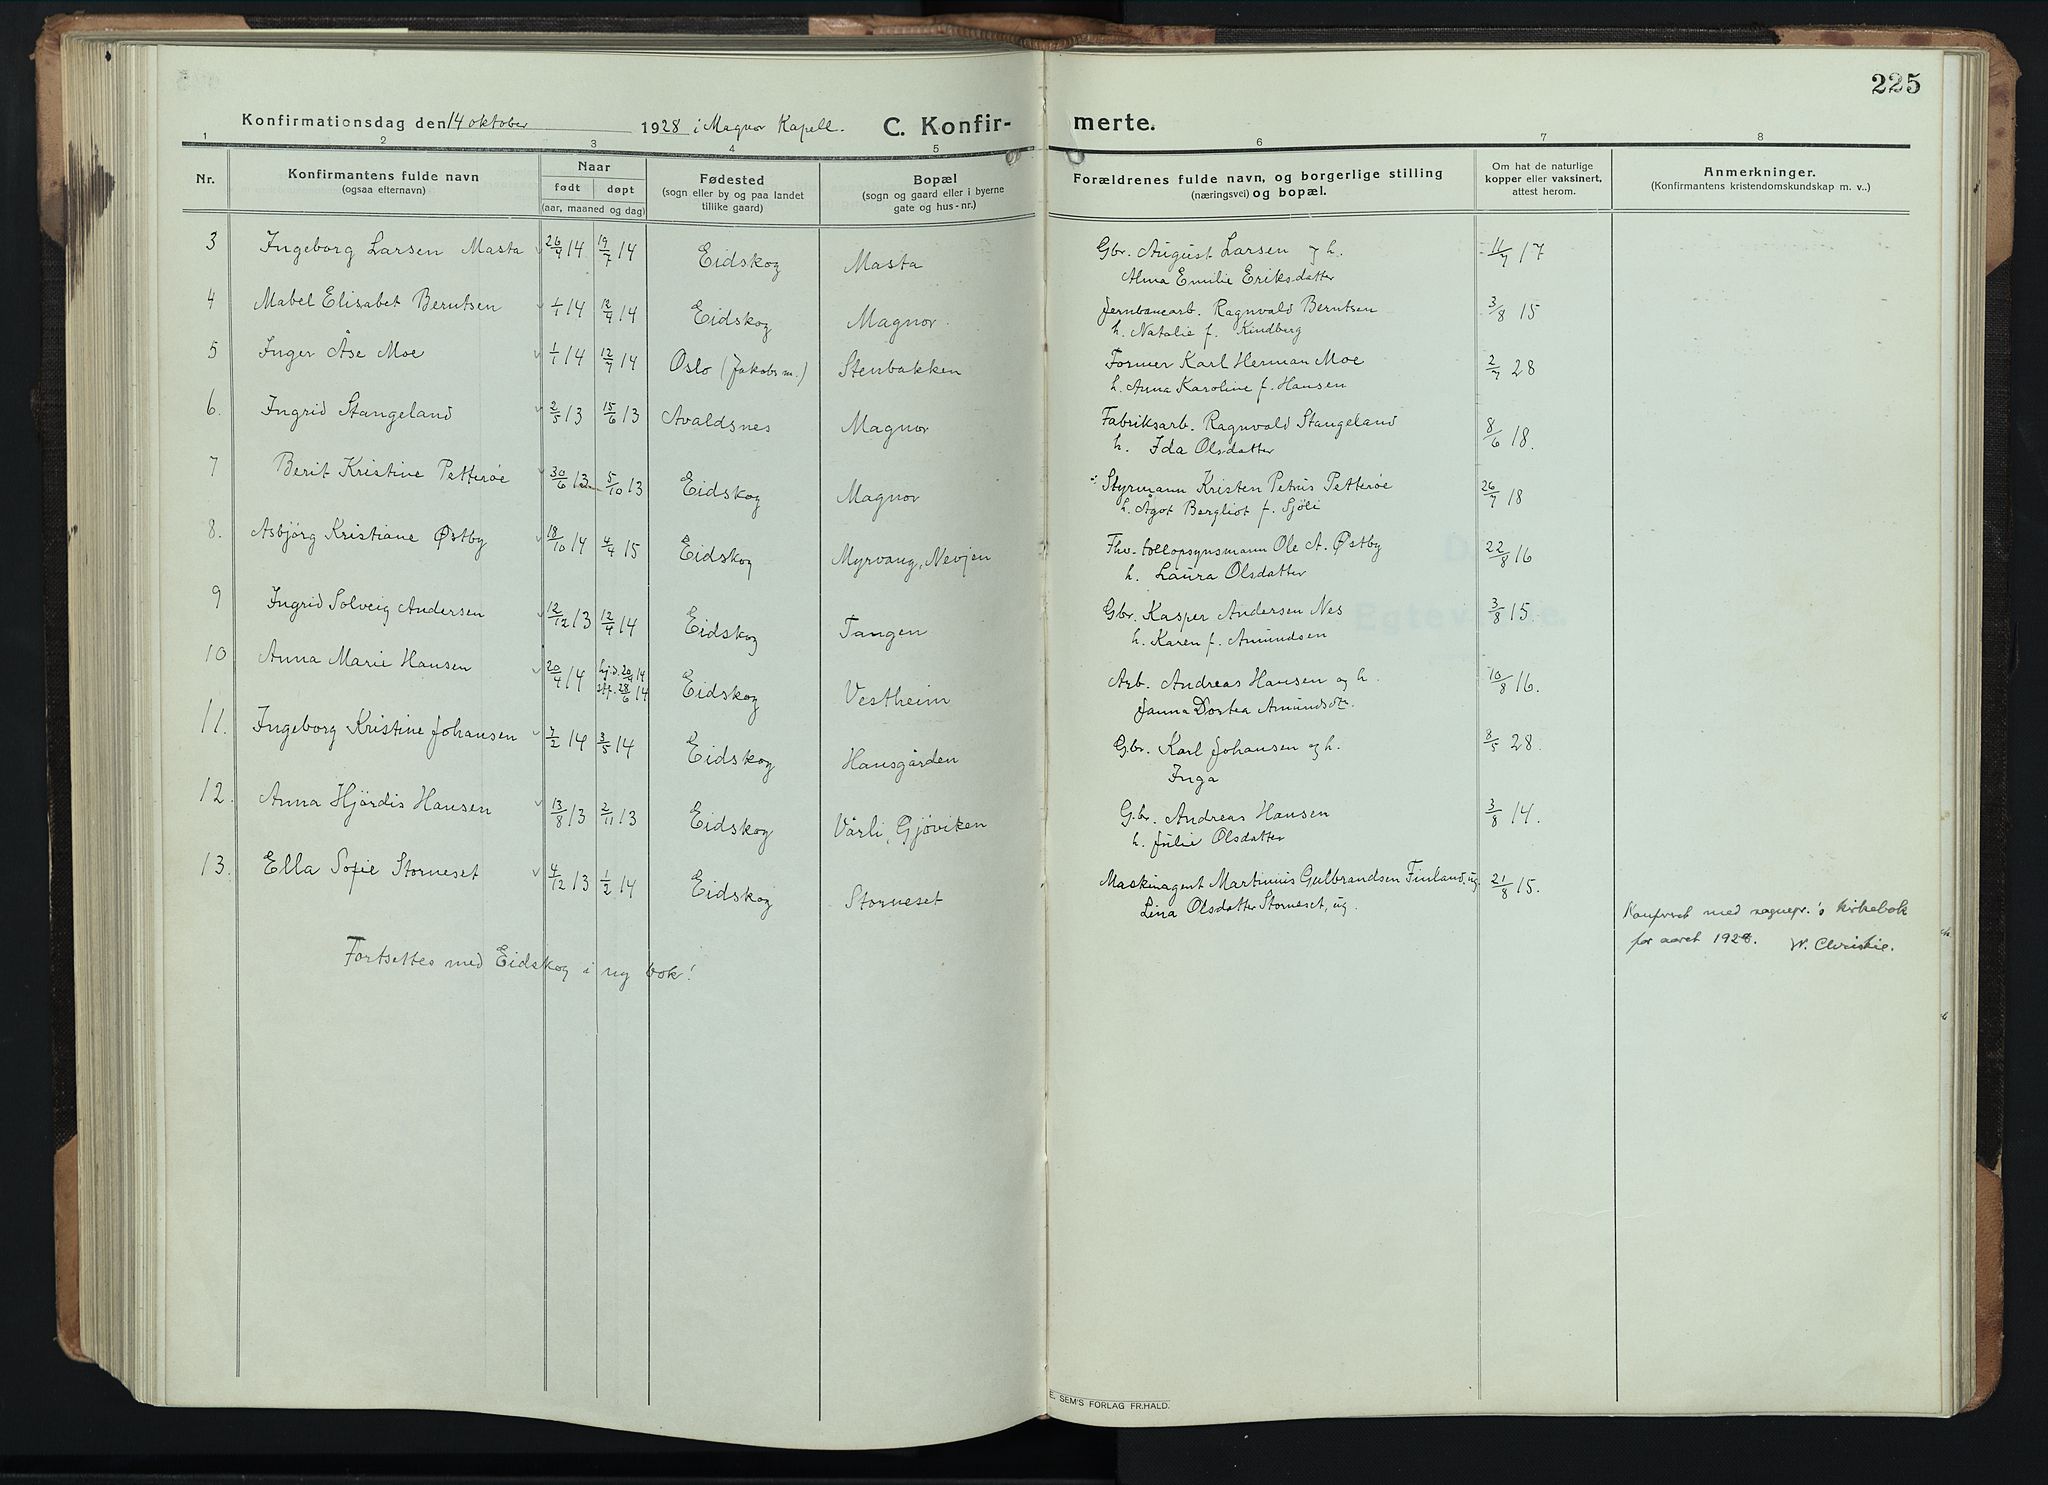 225
Konfirmationsdag den 14 oktober 1928 i Magnor Kapell. C. Konfir- merte.
1 2 3 4 5 6 7 8
Nr. Konfirmantens fulde navn (ogsaa efternavn) Naar født døpt (aar, maaned og dag) Fødested (sogn eller by og paa landet tillike gaard) Bopæl (sogn og gaard eller i byerne gate og hus-nr.) Forældrenes fulde navn, og borgerlige stilling (næringsvei) og bopæl. Om hat de naturlige kopper eller vaksinert, attest herom. Anmerkninger. (Konfirmantens kristendomskundskap m. v..)
3 Ingeborg Larsen Masta 26/4 14 19/7 14 Eidskog Masta Gbr. August Larsen og h. 11/7 17
Alma Emilie Eriksdatter
4 Mabel Elisabet Berntsen 1/1 14 12/4 14 Eidskog Magnor. Jernbanearb. Ragnvald Berntsen 3/8 15
h. Natalie f. Kindberg
5 Inger Åse Moe 1/1 14 12/7 14 Oslo (Jakobs m.) Stenbakken Former Karl Herman Moe 2/7 28
h. Anna Karoline f. Hansen
6. Ingrid Stangeland 2/5 13 15/6 13 Avaldsnes Magnor Fabriksarb. Ragnvald Stangeland 8/6 18.
h. Ida Olsdatter
7 Berit Kristine Petterøe 30/6 13 5/10 13 Eidskog Magnor Styrmann Kristen Petrus Petterøe 26/7 18
h. Ågot Bergliot f. Sjöli
8. Asbjörg Kristiane Østby 18/10 14 4/4 15 Eidskog Myrvang, Nevjen Fhv. tollopsynsmann Ole A. Østby 22/8 16
h. Laura Olsdatter
9 Ingrid Solveig Andersen 12/12 13 12/4 14 Eidskog Tangen Gbr. Kasper Andersen Nes 3/8 15.
h. Karen f. Amundsen
10 Anna Marie Hansen 20/4 14 hj.d. 20/4 14 stf. 28/6 14 Eidskog Vestheim Arb. Andreas Hansen og h. 10/8 16.
Janna Dortea Amundsdtr.
11. Ingeborg Kristine Johansen 7/2 14 3/5 14 Eidskog Hansgården Gbr. Karl Johansen og h. 8/5 28.
Inga
12. Anna Hjördis Hansen 13/8 13 2/11 13 Eidskog Vårli, Gjöviken Gbr. Andreas Hansen 3/8 14.
h. Julie Olsdatter
13. Ella Sofie Storneset 4/12 13 1/2 14 Eidskog Storneset Maskinagent Martinius Gulbrandsen Finland, ug 21/8 15.
Lina Olsdatter Storneset, ug.
Konfrert med sognepr.'s kirkebok
for aaret 1928. W. Christie.
Fortsettes med Eidskog i ny bok!
E. SEM'S FORLAG FR.HALD.